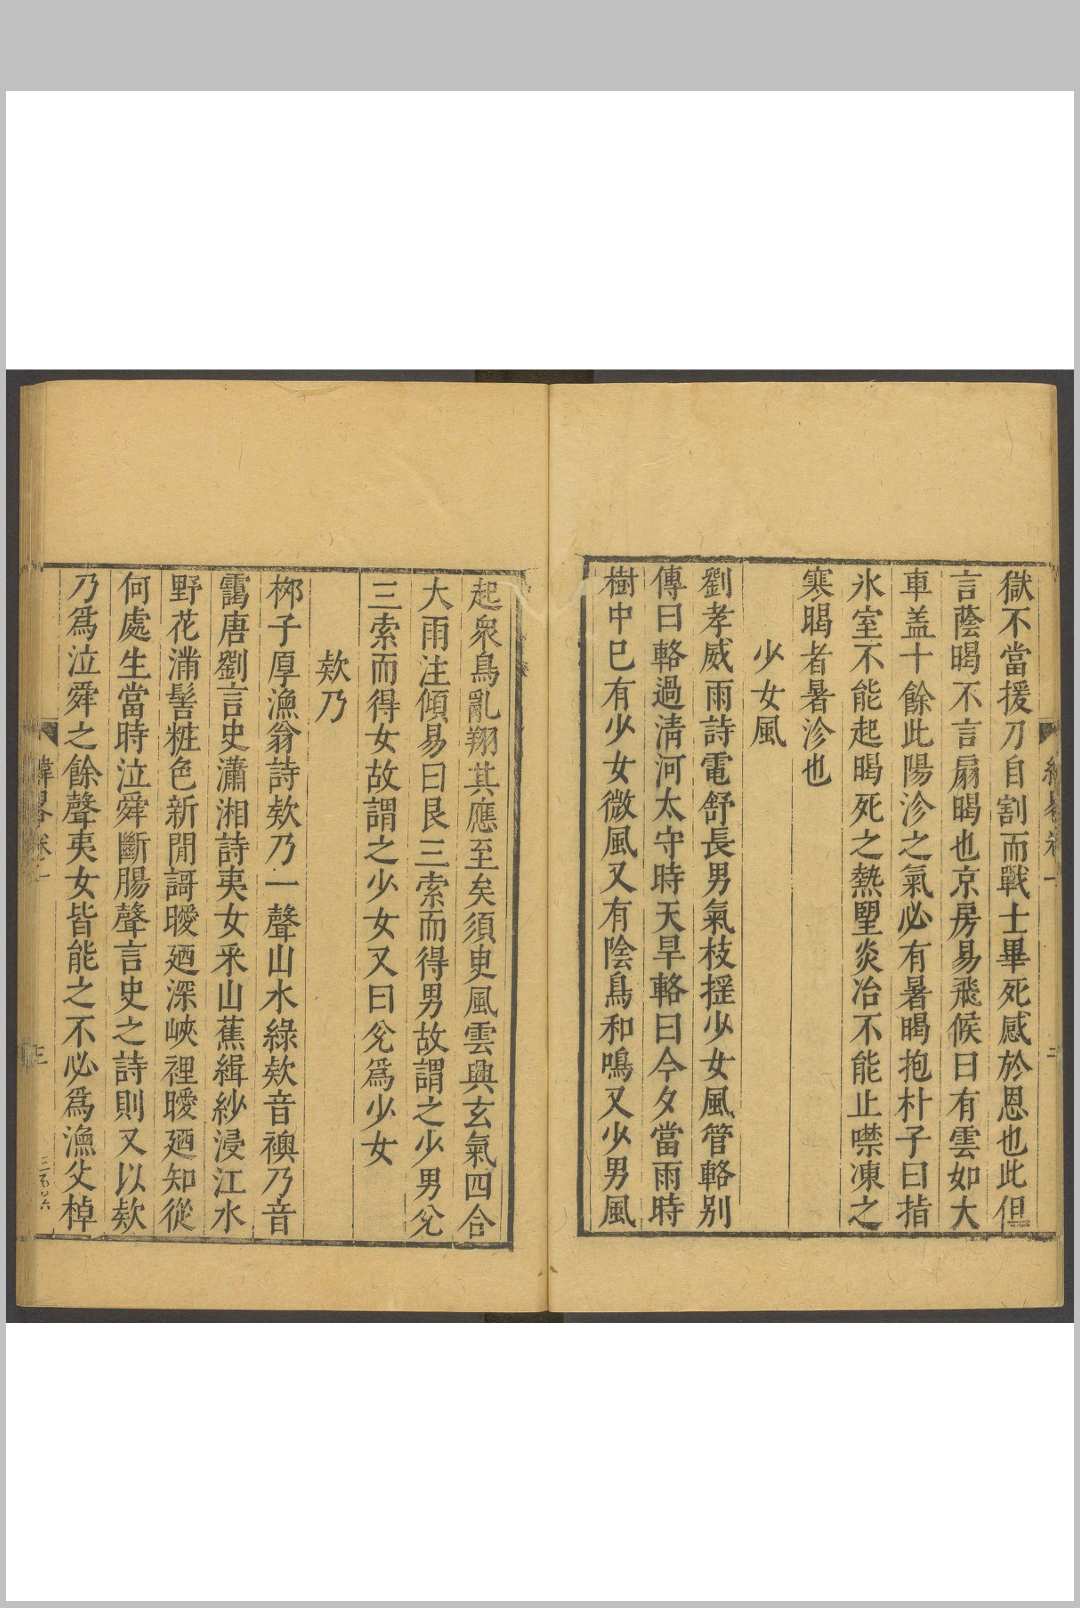 獄不當援刀自割而戰士畢死感於恩也此但
言蔭暍不言扇暍也京房易飛候曰有雲如大
車盖十餘此陽沴之氣必有暑暍抱朴子曰指
氷室不能起暍死之熱朢炎冶不能止噤凍之
寒暍者暑沴也
少女風
劉孝威雨詩電舒長男氣枝揺少女風管輅别
傳曰輅過淸河太守時天旱輅曰今夕當雨時
樹中巳有少女微風又有陰鳥和鳴又少男風
起衆鳥亂翔其應至矣須臾風雲興玄氣四合
大雨注傾易曰艮三索而得男故謂之少男兊
三索而得女故謂之少女又曰兊爲少女
欸乃
桺子厚漁翁詩欸乃一聲山水綠欸音襖乃音
靄唐劉言史瀟湘詩夷女采山蕉緝紗浸江水
野花滿髻粧色新閒謌曖廼深峽裡曖廼知從
何處生當時泣舜斷腸聲言史之詩則又以欸
乃爲泣舜之餘聲夷女皆能之不必爲漁父棹
緯畧卷一
三